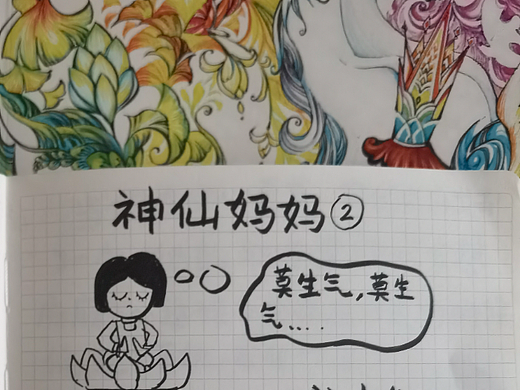 神仙妈妈②
莫生气,莫生
气.....